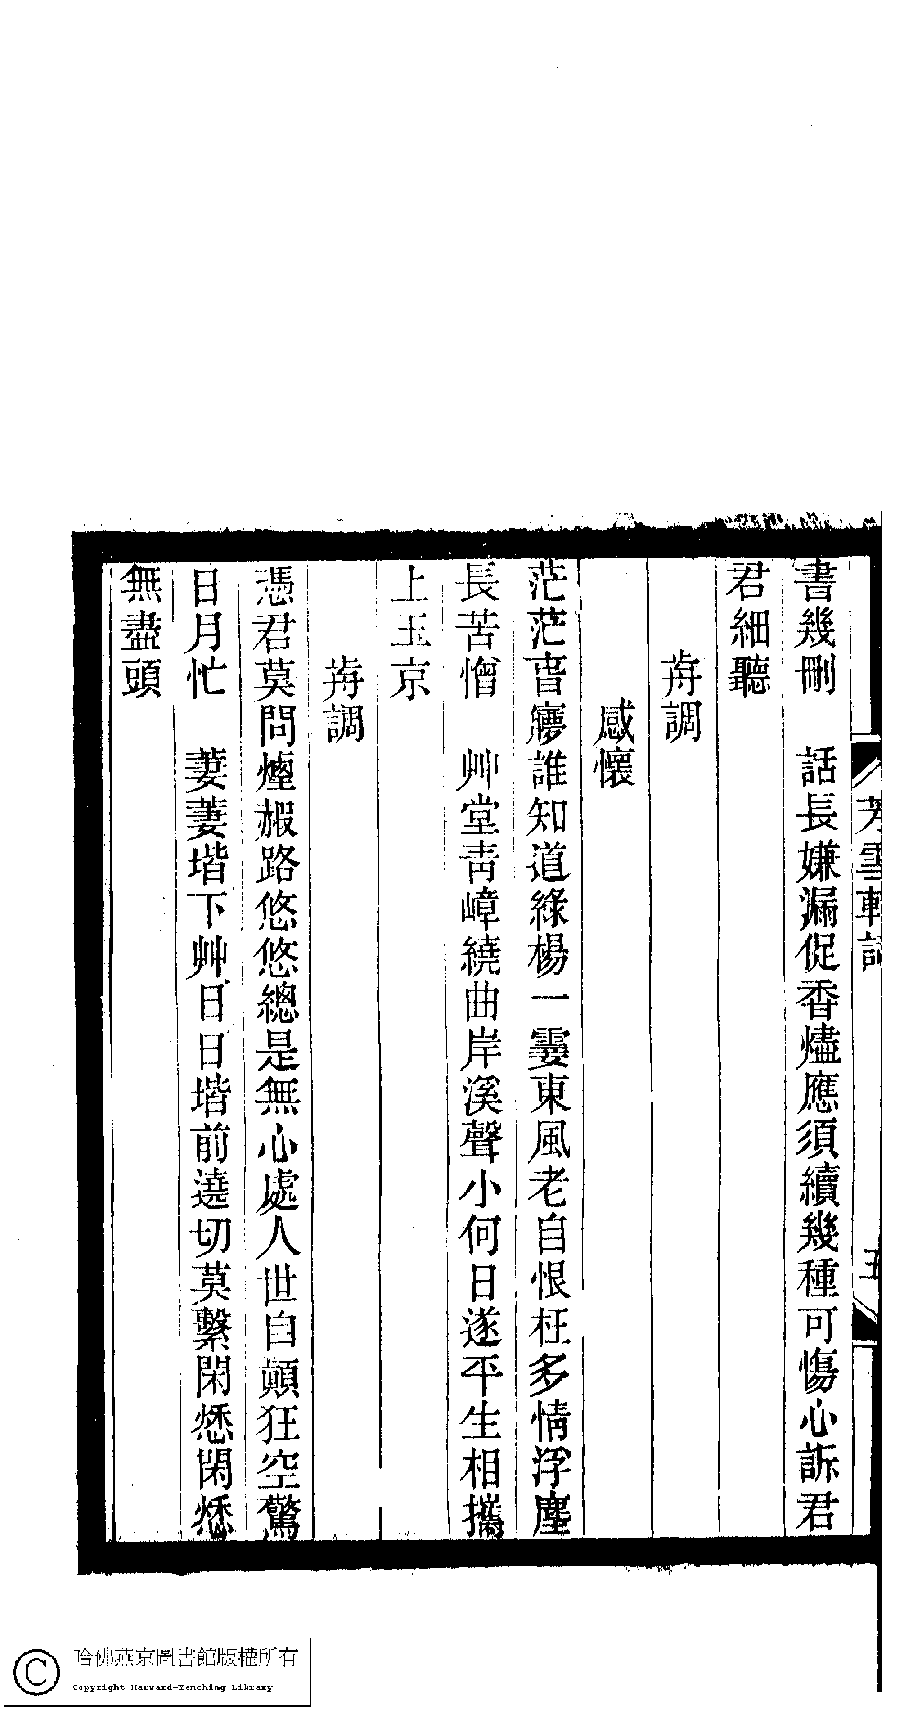 書幾刪　話長嫌漏促香燼應須續幾種可傷心訴君
君細聽
前調
感懷
茫茫春夢誰知道綠楊一霎東風老自恨枉多情浮塵
長苦憎　艸堂靑嶂繞曲岸溪聲小何日遂平生相攜
上玉京
前調
憑君莫問煙霞路悠悠總是無心處人世自顛狂空驚
日月忙　萋萋堦下艸日日堦前遶切莫繫閑愁閑愁
無盡頭
芳雪軒詞
五
哈佛燕京圖書館版權所有
Copyright Harvard-Yenching Library